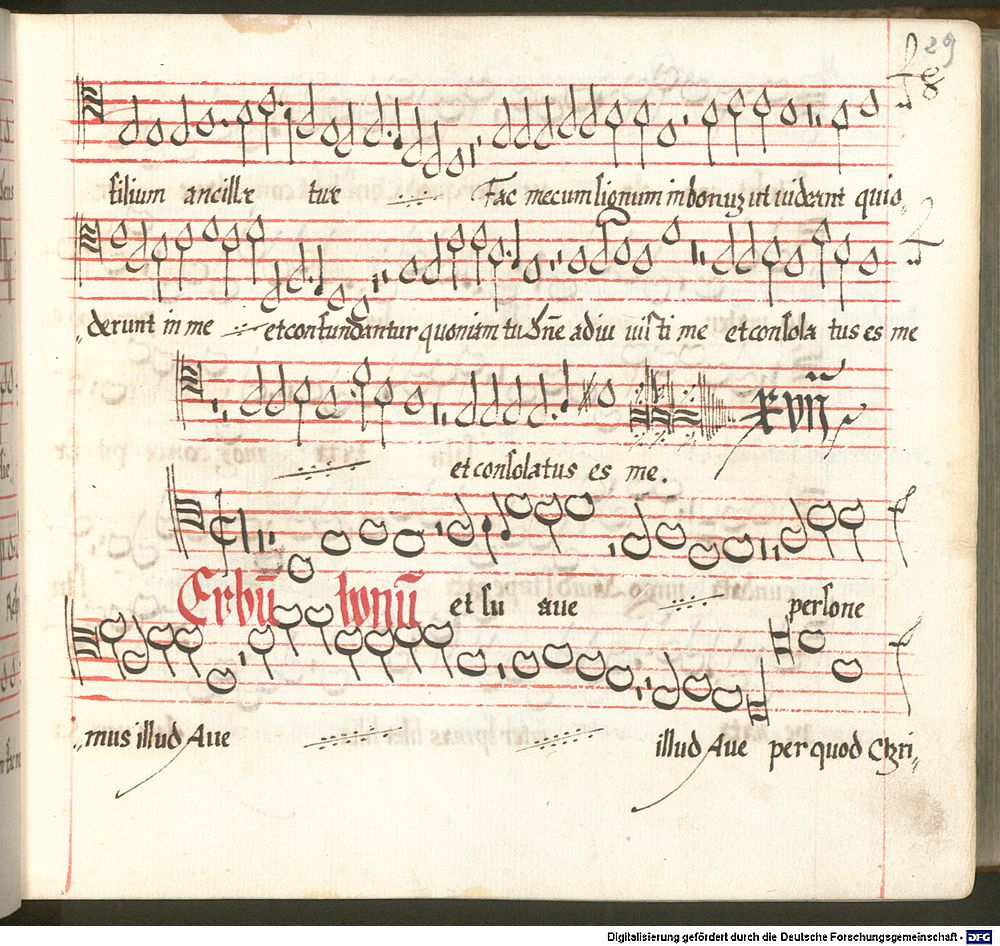 29
filium ancillæ tuæ Fac mecum signum in bonuʒ ut uideant qui o
derunt in me et confundantur quoniam tu dn̄e adiu uisti me et consola tus es me
XVII
et consolatus es me.
Erbū bonū et su aue persone
mus illud Aue illud Aue per quod Chri
Digitalisierung gefördert durch die Deutsche Forschungsgemeinschaft - DFG